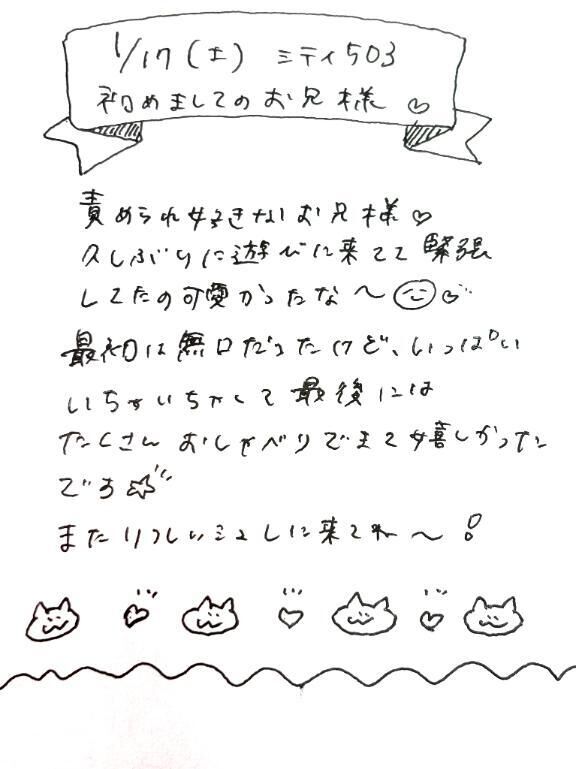 1/17(土) ミティ503
初めましてのお兄様♡
責められ好きなお兄様♡
久しぶりに遊びに来てて緊張
してたの可愛かったな〜
最初は無口だったけど、いっぱい
いちゃいちゃして最後には
たくさんおしゃべりできて嬉しかった
です☆
またリフレッシュしに来てね〜!